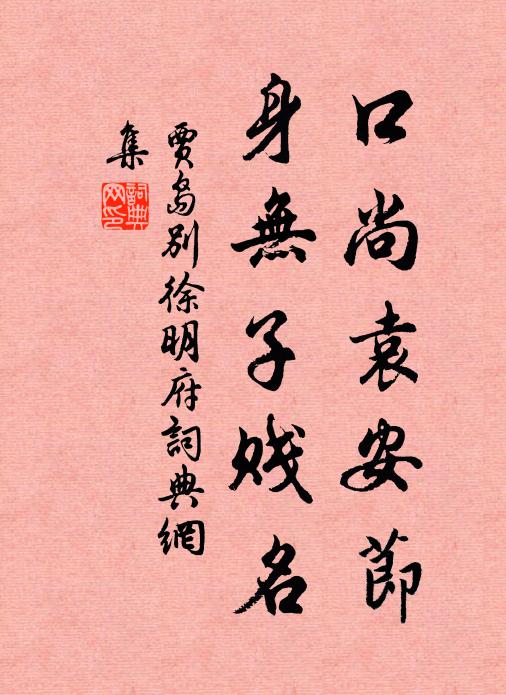 口尚袁安節
身無子賤名
賈島別徐明府詞典網
集
詞典網印